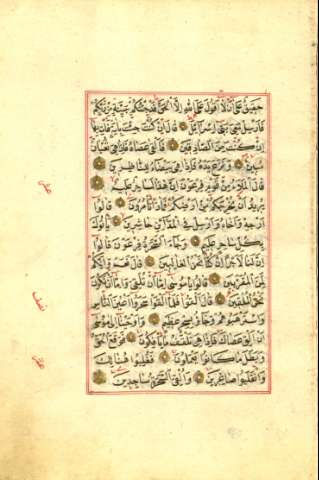 حَقِيقٌ عَلَى أَنْ لَا أَقُولَ عَلَى اللَّهِ إِلَّا الْحَقَّ قَدْ جِئْتُكُمْ بِبَيِّنَةٍ مِنْ رَبِّكُمْ
فَأَرْسِلْ مَعِيَ بَنِي إِسْرَائِيلَ قَالَ إِنْ كُنْتَ جِئْتَ بِآيَةٍ فَأْتِ بِهَا
إِنْ كُنْتَ مِنَ الصَّادِقِينَ فَأَلْقَى عَصَاهُ فَإِذَا هِيَ ثُعْبَانٌ
مُبِينٌ وَنَزَعَ يَدَهُ فَإِذَا هِيَ بَيْضَاءُ لِلنَّاظِرِينَ
قَالَ الْمَلَأُ مِنْ قَوْمِ فِرْعَوْنَ إِنَّ هَذَا لَسَاحِرٌ عَلِيمٌ
يُرِيدُ أَنْ يُخْرِجَكُمْ مِنْ أَرْضِكُمْ فَمَاذَا تَأْمُرُونَ قَالُوا
أَرْجِهْ وَأَخَاهُ وَأَرْسِلْ فِي الْمَدَائِنِ حَاشِرِينَ يَأْتُوكَ
بِكُلِّ سَاحِرٍ عَلِيمٍ وَجَاءَ السَّحَرَةُ فِرْعَوْنَ قَالُوا
إِنَّ لَنَا لَأَجْرًا إِنْ كُنَّا نَحْنُ الْغَالِبِينَ قَالَ نَعَمْ وَإِنَّكُمْ
لَمِنَ الْمُقَرَّبِينَ قَالُوا يَا مُوسَى إِمَّا أَنْ تُلْقِيَ وَإِمَّا أَنْ نَكُونَ
نَحْنُ الْمُلْقِينَ قَالَ أَلْقُوا فَلَمَّا أَلْقَوْا سَحَرُوا أَعْيُنَ النَّاسِ
وَاسْتَرْهَبُوهُمْ وَجَاءُوا بِسِحْرٍ عَظِيمٍ وَأَوْحَيْنَا إِلَى مُوسَى
أَنْ أَلْقِ عَصَاكَ فَإِذَا هِيَ تَلْقَفُ مَا يَأْفِكُونَ فَوَقَعَ الْحَقُّ
وَبَطَلَ مَا كَانُوا يَعْمَلُونَ فَغُلِبُوا هُنَالِكَ
وَانْقَلَبُوا صَاغِرِينَ وَأُلْقِيَ السَّحَرَةُ سَاجِدِينَ